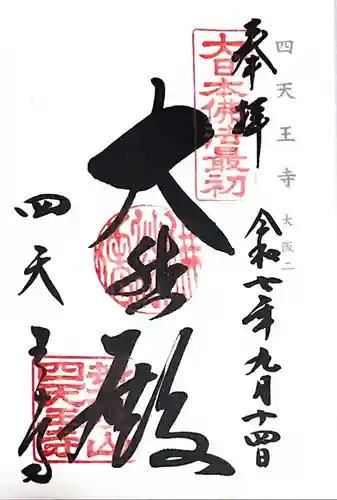 四天王寺 大阪二
奉拝
令和七年九月十四日
大日本佛法最初
大悲殿
四天王寺
荒陵山
四天王寺